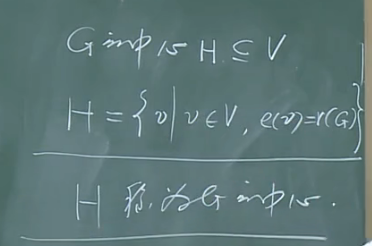 G的中心 H ⊆ V
H = {v | v ∈ V, e(v)=r(G)}
H 称为G的中心.